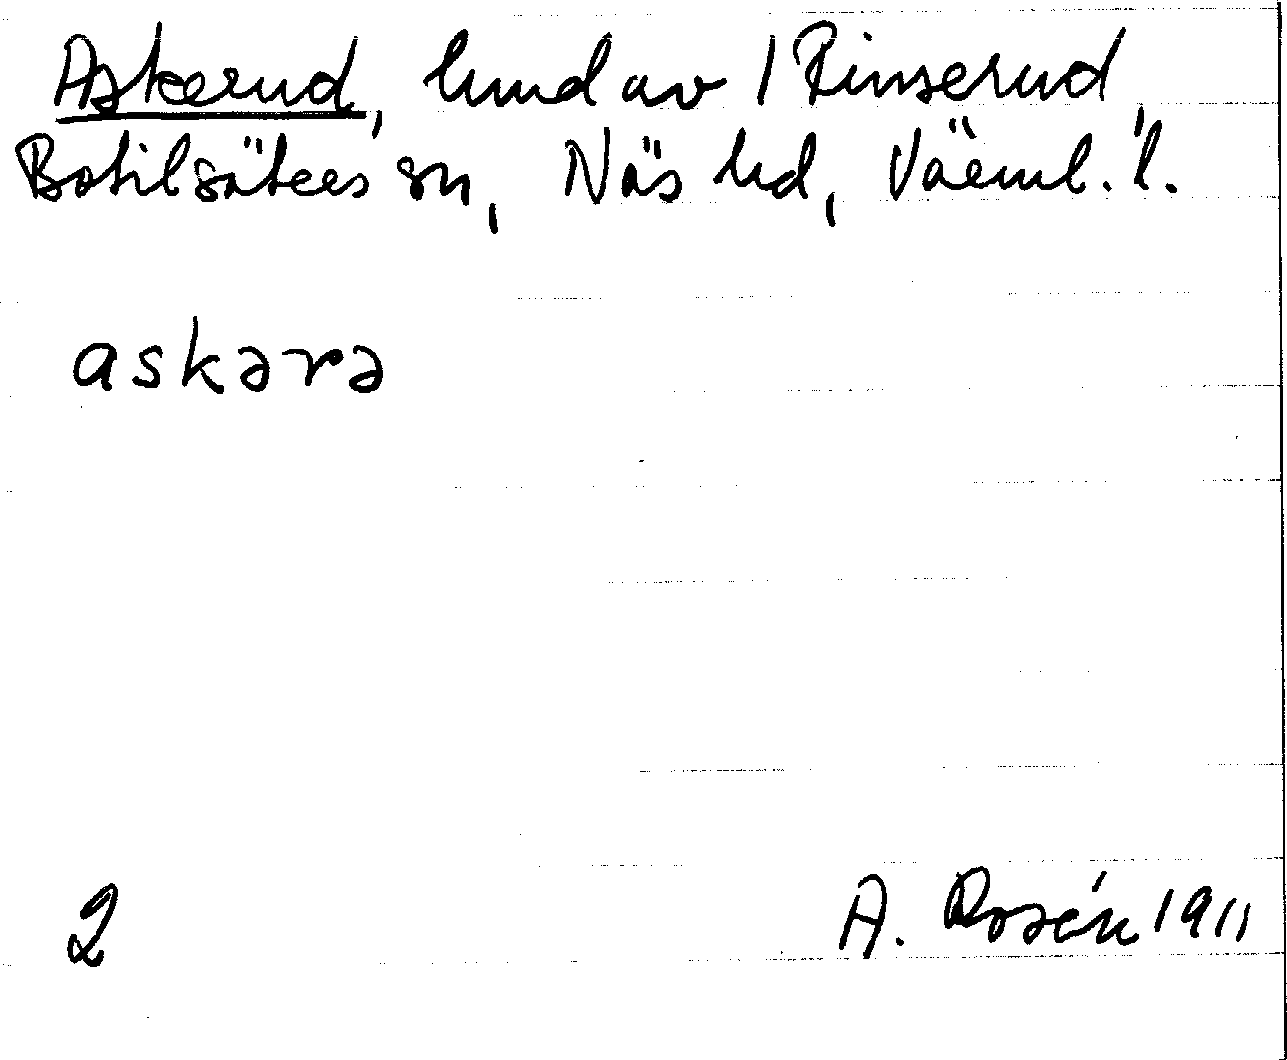 Askerud, lund av 1 Rinserud,
Botilsäters sn, Näs hd, Värml. l.
askərə
2 A. Rosén 1911